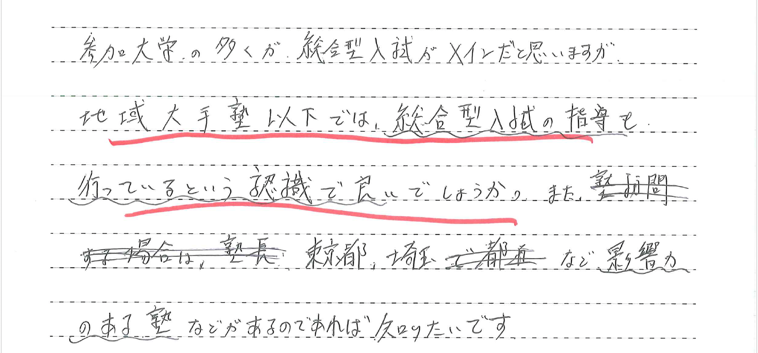 参加大学の多くが、総合型入試がメインだと思いますが
地域大手塾以下では、総合型入試の指導も
行っているという認識で良いでしょうか。また、塾訪問
する場合は、塾長 東京都、埼玉で都直 など影響力
のある塾などがあるのであれば知りたいです